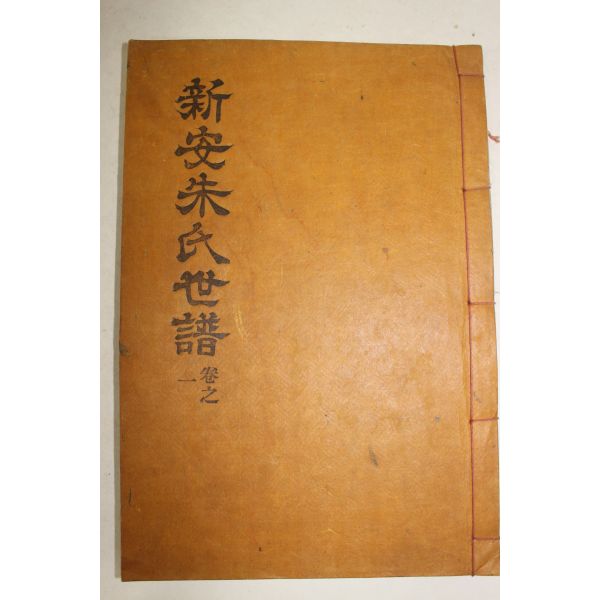 新安朱氏世譜
卷之一